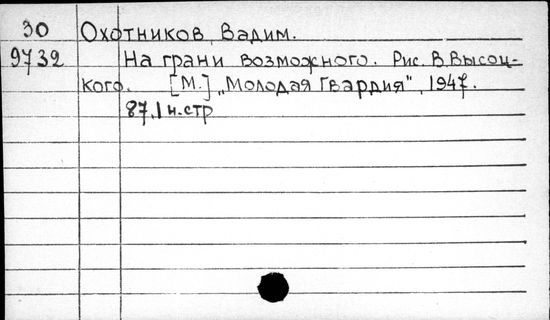 30 Охотников, Вадим.
9732 На грани возможного. Рис. В. Высоц-
кого. [М.] „Молодая Гвардия", 1947.
87, 1 н. стр